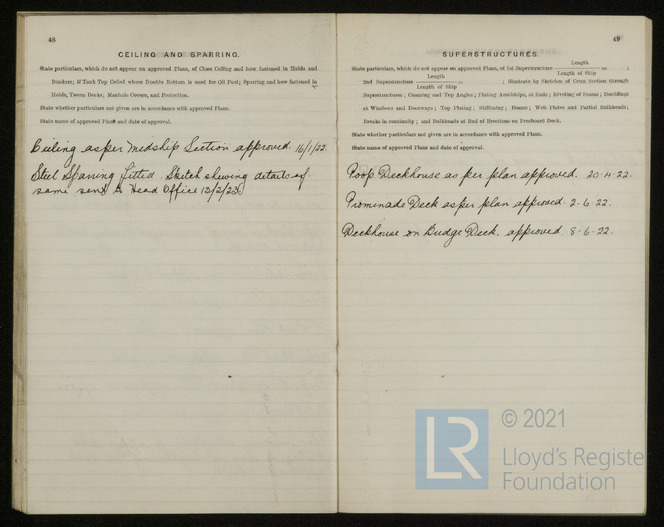 48
CEILING AND SPARRING.
State particulars, which do not appear on approved Plans, of Close Ceiling and how fastened in Holds and
Bunkers; if Tank Top Ceiled where Double Bottom is used for Oil Fuel; Sparring and how fastened in
Holds, Tween Decks; Manhole Covers, and Protection.
State whether particulars not given are in accordance with approved Plans.
State name of approved Plan and date of approval.
Ceiling as per Midship Section approved 16/1/22.
Steel Sparring fitted. Sketch shewing details of
same sent to Head Office 13/2/23.
49
SUPERSTRUCTURES.
State particulars, which do not appear on approved Plans, of 1st Superstructure Length / Length of Ship = ;
2nd Superstructure Length / Length of Ship = ; Illustrate by Sketches of Cross Section through
Superstructures; Coaming and Top Angles; Plating Amidships, at Ends; Riveting of Seams; Doublings
at Windows and Doorways; Top Plating; Stiffening; Beams; Web Plates and Partial Bulkheads;
Breaks in continuity; and Bulkheads at End of Erections on Freeboard Deck.
State whether particulars not given are in accordance with approved Plans.
State name of approved Plans and date of approval.
Poop Deckhouse as per plan approved. 20.4.22.
Promenade Deck as per plan approved 2.6.22.
Deckhouse on Bridge Deck. approved 8.6.22.
LR
© 2021
Lloyd's Register
Foundation